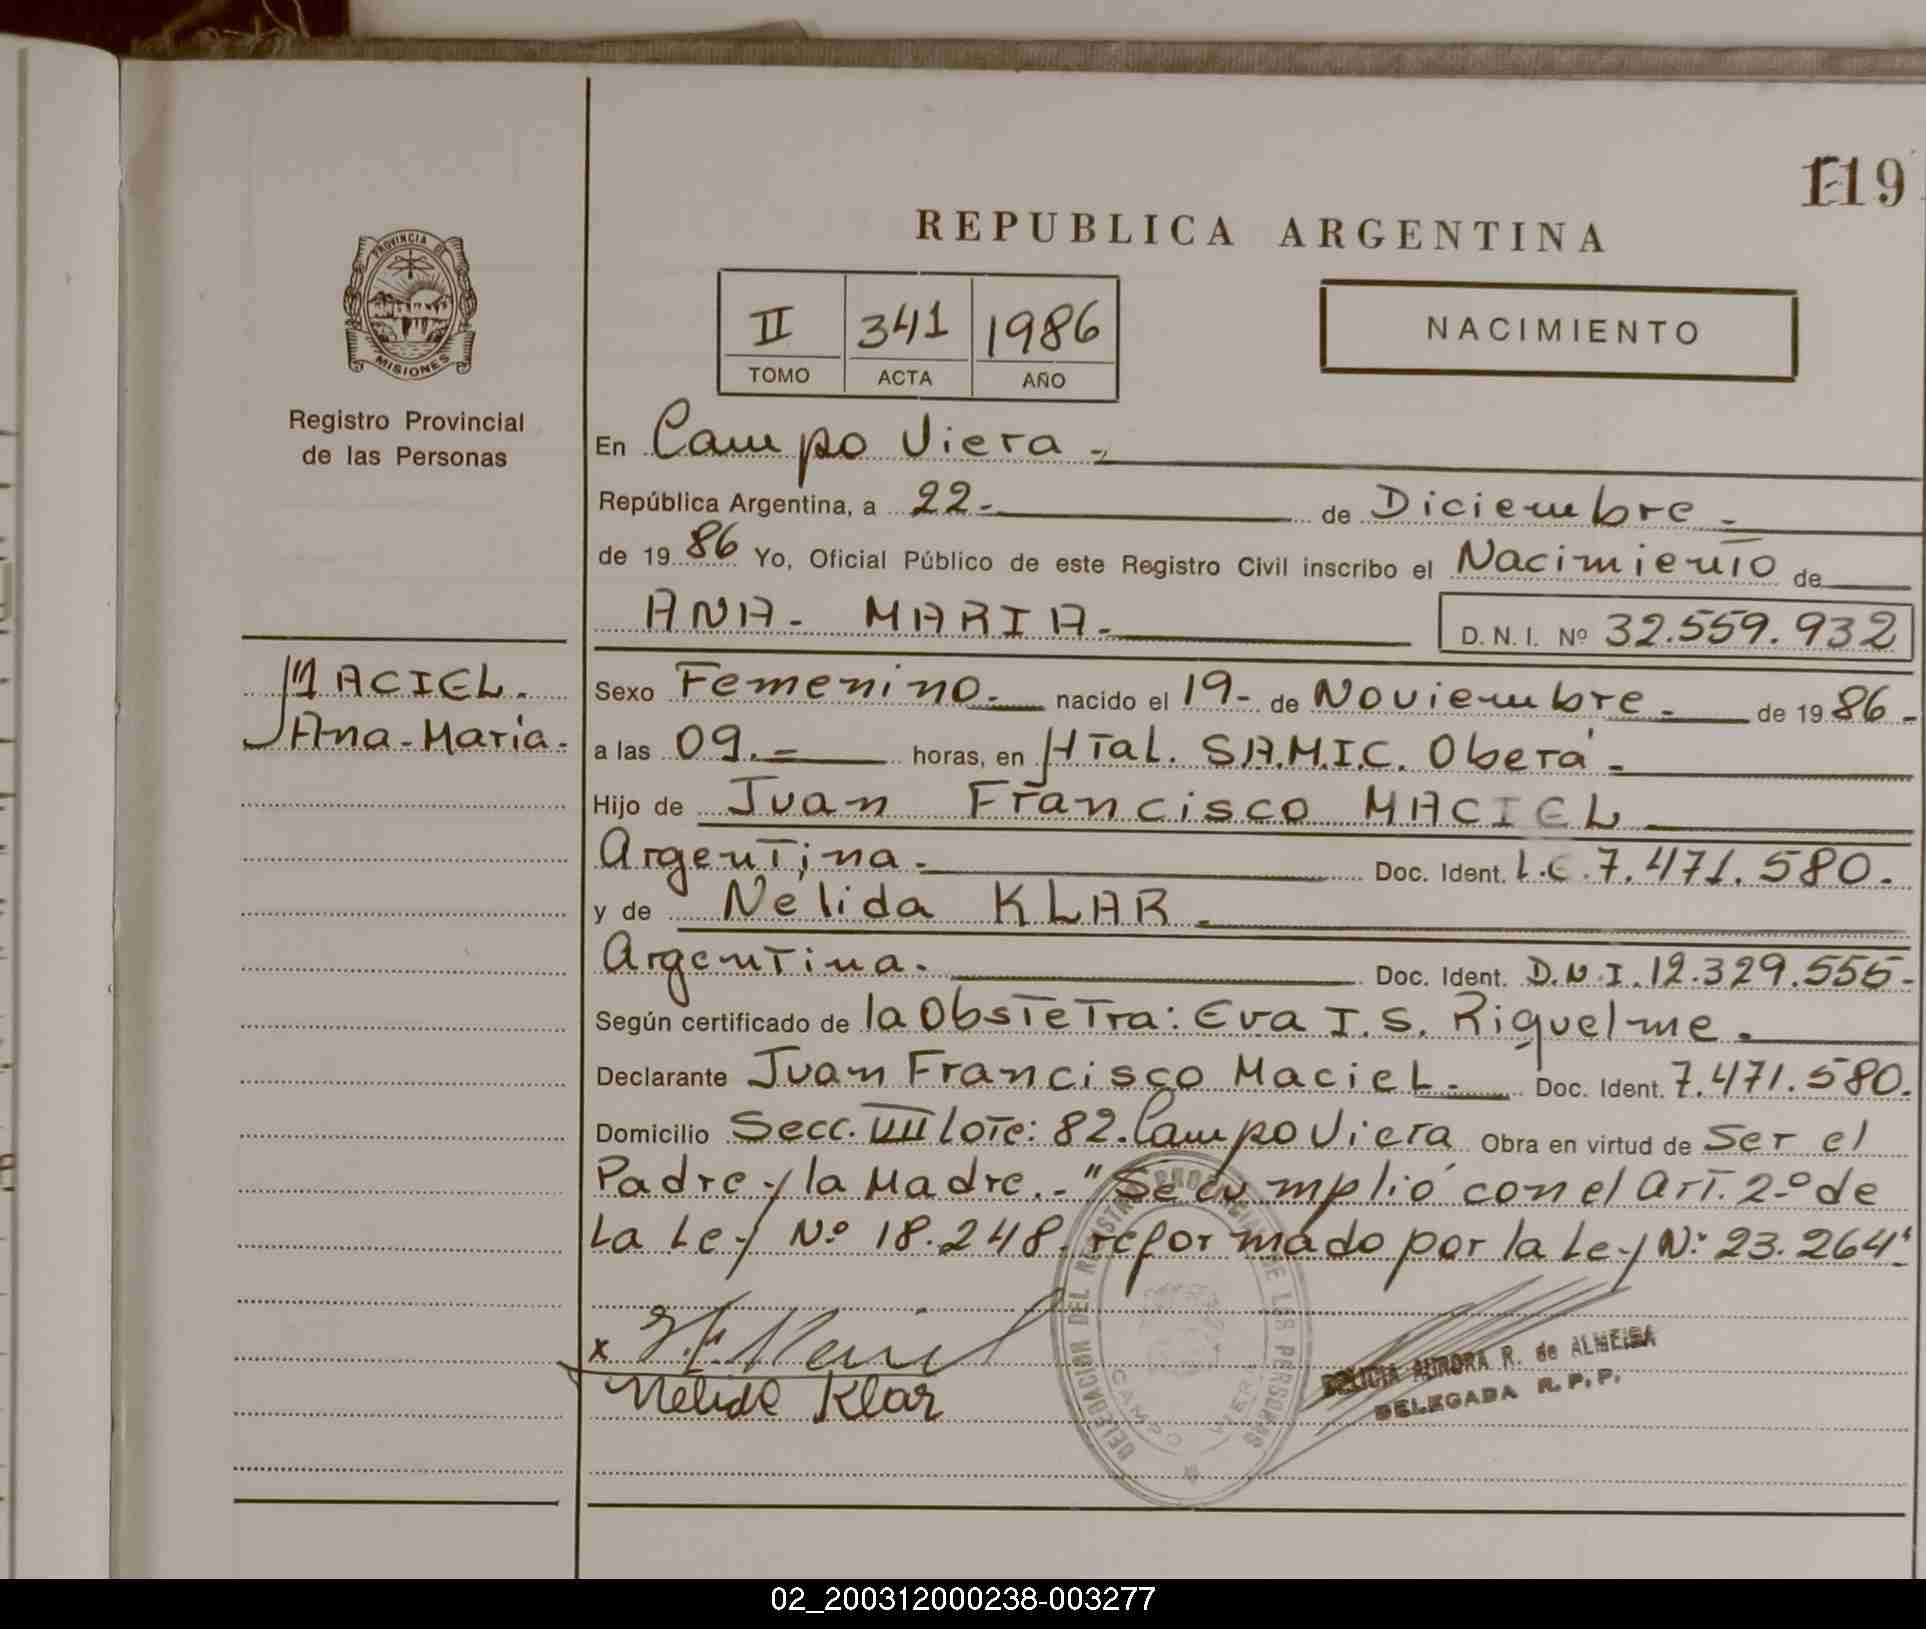 119
REPUBLICA ARGENTINA
PROVINCIA DE
MISIONES
II 341 1986
TOMO ACTA AÑO
NACIMIENTO
Registro Provincial
de las Personas
En Campo Viera.-
República Argentina, a 22.- de Diciembre.-
de 1986 Yo, Oficial Público de este Registro Civil inscribo el Nacimiento de
ANA- MARIA.- D.N.I. Nº 32.559.932
MACIEL.
Ana-Maria.-
Sexo Femenino.- nacido el 19- de Noviembre.- de 1986.-
a las 09.= horas, en Htal. S.A.M.I.C. Oberá.-
Hijo de Juan Francisco MACIEL
Argentina.- Doc. Ident. L.E.7.471.580.
y de Nélida KLAR.-
Argentina.- Doc. Ident. D.N.I. 12.329.555.-
Según certificado de la Obstetra: Eva I.S. Riquelme.
Declarante Juan Francisco Maciel.- Doc. Ident. 7.471.580.
Domicilio Secc. VIII Lote: 82. Campo Viera Obra en virtud de Ser el
Padre y la Madre.-"Se cumplió con el Art. 2-º de
La Ley Nº 18.248. reformado por la Ley Nº 23.264"
x J.F. Maciel
Nelida Klar
DELEGACION DEL REGISTRO PROVINCIAL DE LAS PERSONAS
CAMPO VIERA
DELICIA AURORA R. de ALMEIDA
DELEGADA R.P.P.
02_200312000238-003277